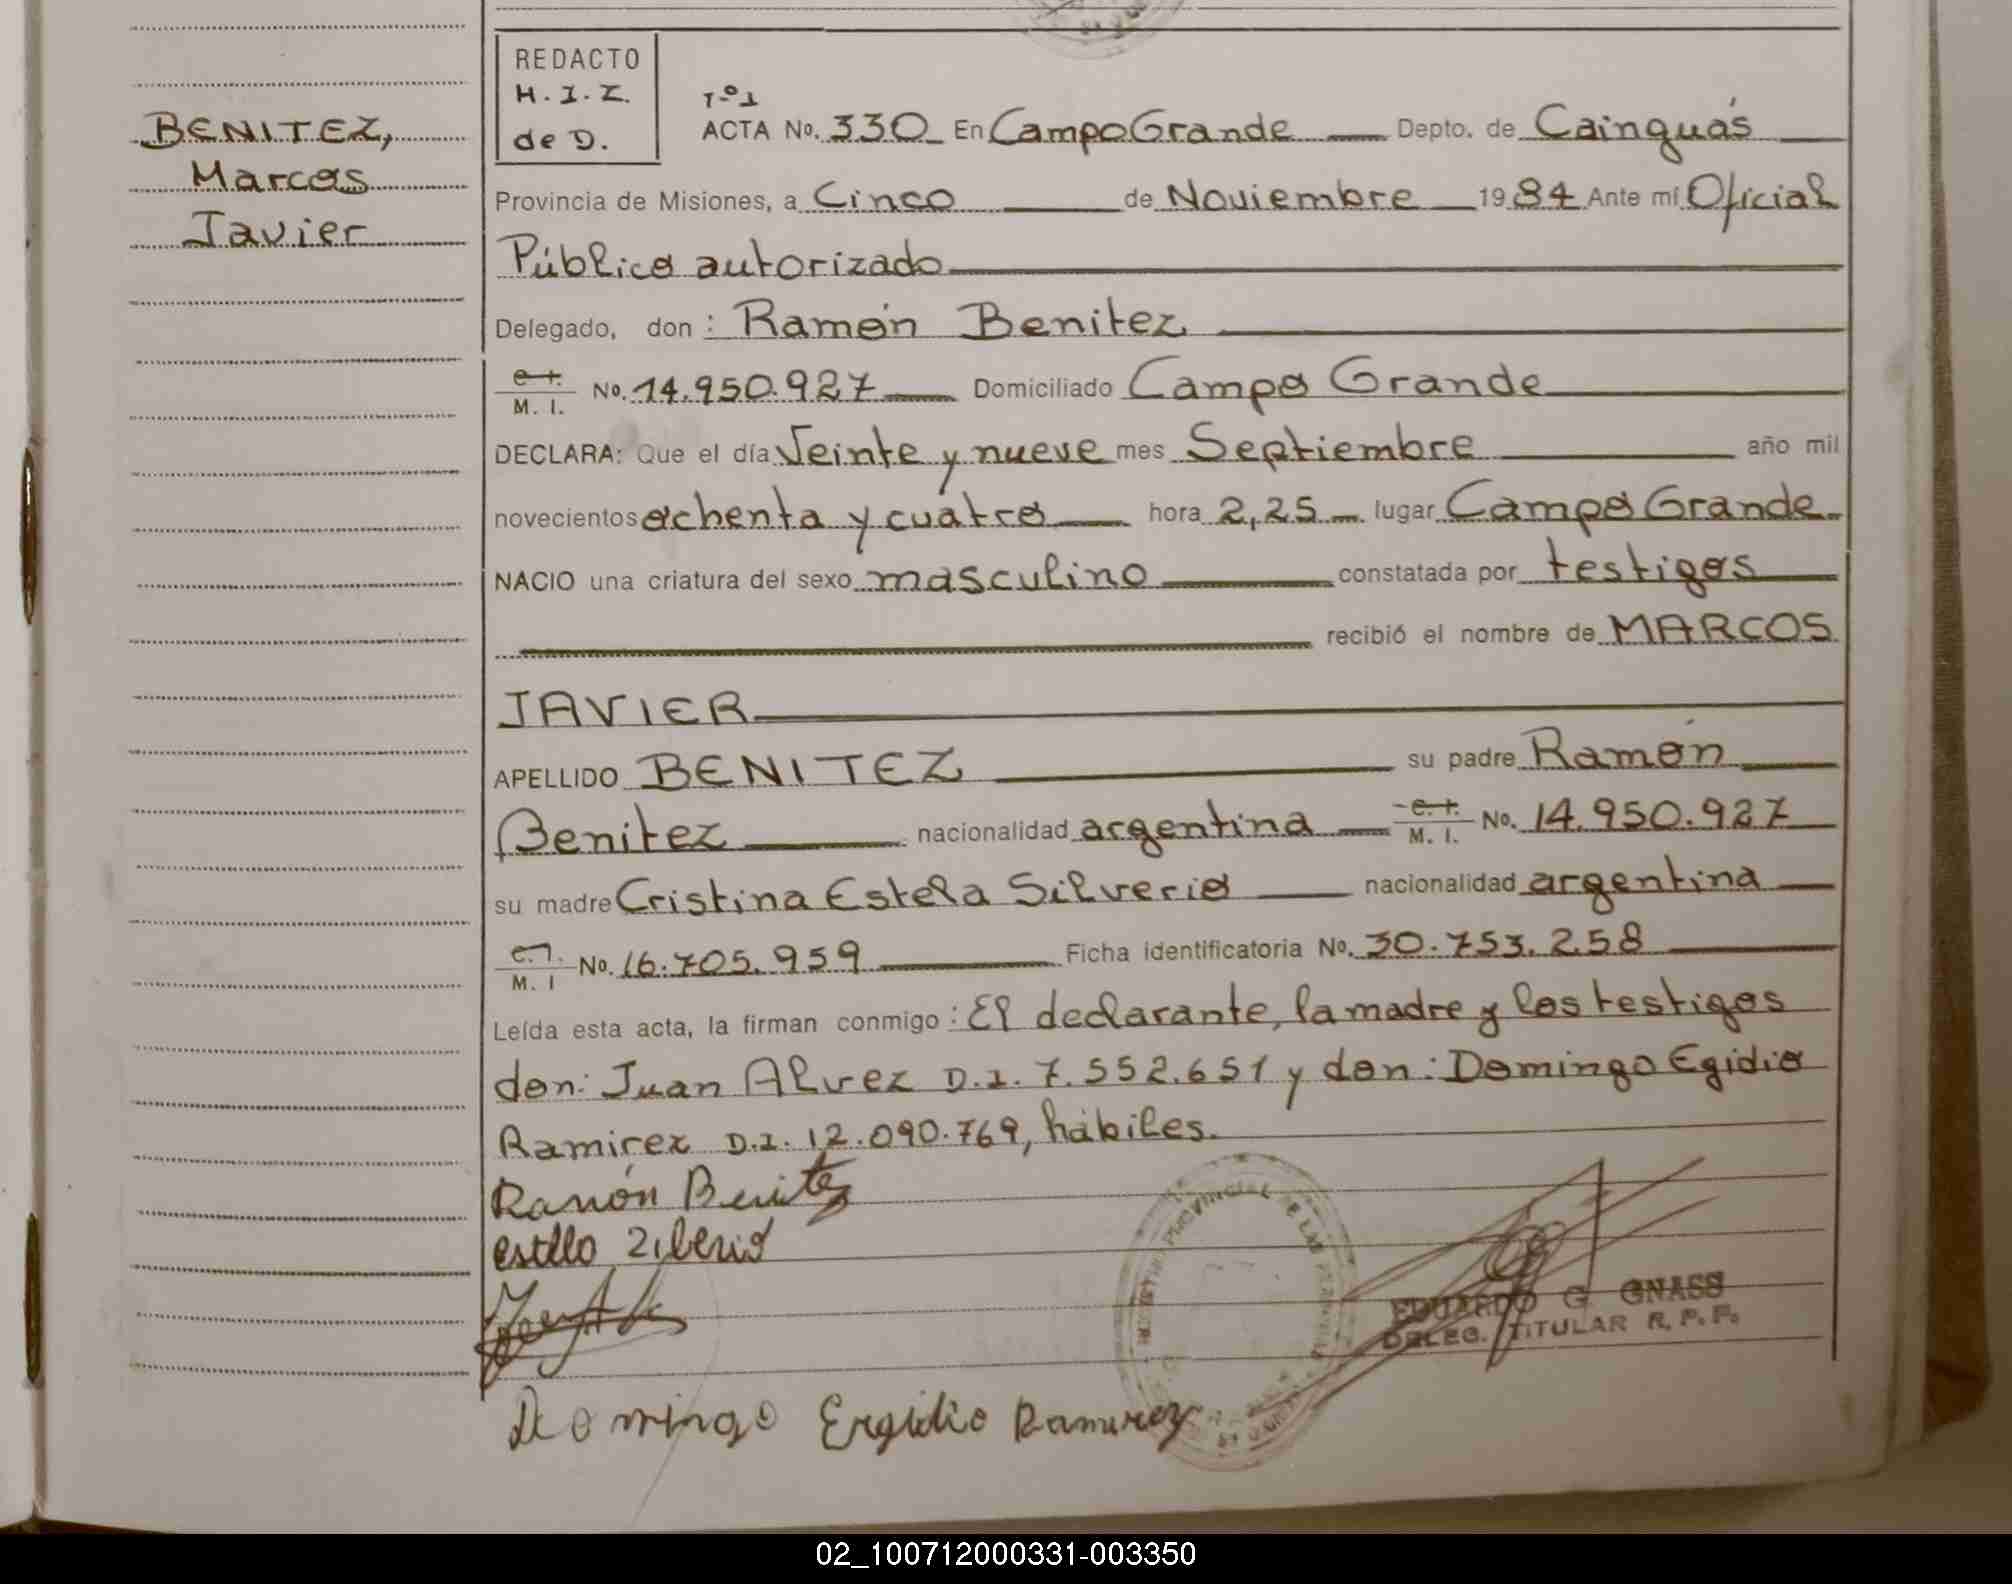 BENITEZ,
Marcos
Javier
REDACTO
H. I. Z.
de D.
Tº1
ACTA No. 330 En Campo Grande Depto. de Cainguás
Provincia de Misiones, a Cinco de Noviembre 1984 Ante mí Oficial
Público autorizado
Delegado, don : Ramón Benitez
M. I. No. 14.950.927 Domiciliado Campo Grande
DECLARA: Que el día Veinte y nueve mes Septiembre año mil
novecientos ochenta y cuatro hora 2,25 lugar Campo Grande
NACIO una criatura del sexo masculino constatada por testigos
recibió el nombre de MARCOS
JAVIER
APELLIDO BENITEZ su padre Ramón
Benitez nacionalidad argentina M. I. No. 14.950.927
su madre Cristina Estela Silverio nacionalidad argentina
M. I No. 16.705.959 Ficha identificatoria No. 30.753.258
Leída esta acta, la firman conmigo : El declarante, la madre y los testigos
don: Juan Alvez D.I. 7.552.651 y don: Domingo Egidio
Ramirez D.I. 12.090.769, hábiles.
Ramón Benitez
EDUARDO G. GNASS
DELEG. TITULAR R. P. P.
Domingo Ergidio Ramirez
02_100712000331-003350